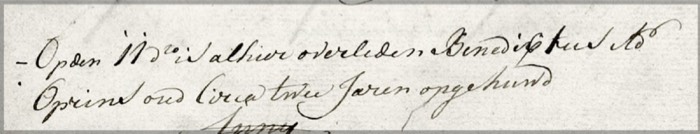 - Op den 11 dro is alhier overleden Benedictus
Oprins oud Circa twee Jaren